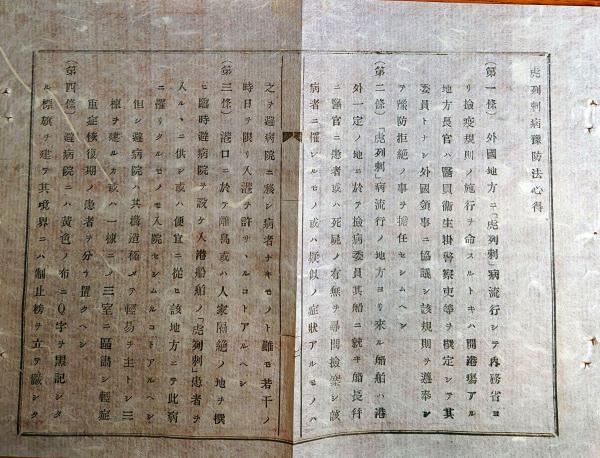 虎列刺病豫防法心得
(第一條) 外國地方ニ「虎列刺」病流行シテ內務省ヨ
リ檢疫規則ノ施行ヲ命スルトキハ開港塲アル
地方長官ハ醫員衛生掛警察吏等ヲ撰定シテ其
委員トナシ外國領事ニ協議シ該規則ヲ遵奉シ
テ豫防拒絶ノ事ヲ擔任セシムヘシ
(第二條) 「虎列刺」病流行ノ地方ヨリ來ル船舶ハ港
外一定ノ地ニ於テ撿疫委員其船ニ就キ船長幷
ニ醫官ニ患者或ハ死屍ノ有無ヲ尋問撿察シ該
病者ニ罹ルモノ或ハ疑似ノ症狀アルモノハ
之ヲ避病院ニ移シ病者ナキモノト雖モ若干ノ
時日ヲ限リ入港ヲ許サヽルコトアルヘシ
(第三條) 港口ニ於テ離島或ハ人家隔絶ノ地ヲ撰
ヒ臨時避病院ヲ設ケ入港船舶ノ「虎列刺」患者ヲ
入ルヽニ供シ或ハ便宜ニ從ヒ該地方ニテ此病
ニ罹リタルモノモ入院セシムルコトアルヘシ
但シ避病院ハ其構造極メテ輕易ヲ主トシ三
棟ヲ建ルカ或ハ一棟ニノ三室ニ區畫シ輕症
重症恢復期ノ患者ヲ分チ置クヘシ
(第四條) 避病院ニハ黃色ノ布ニQ字ヲ黑記シタ
ル標旗ヲ建テ其境界ニハ制止榜ヲ立テ嚴シク